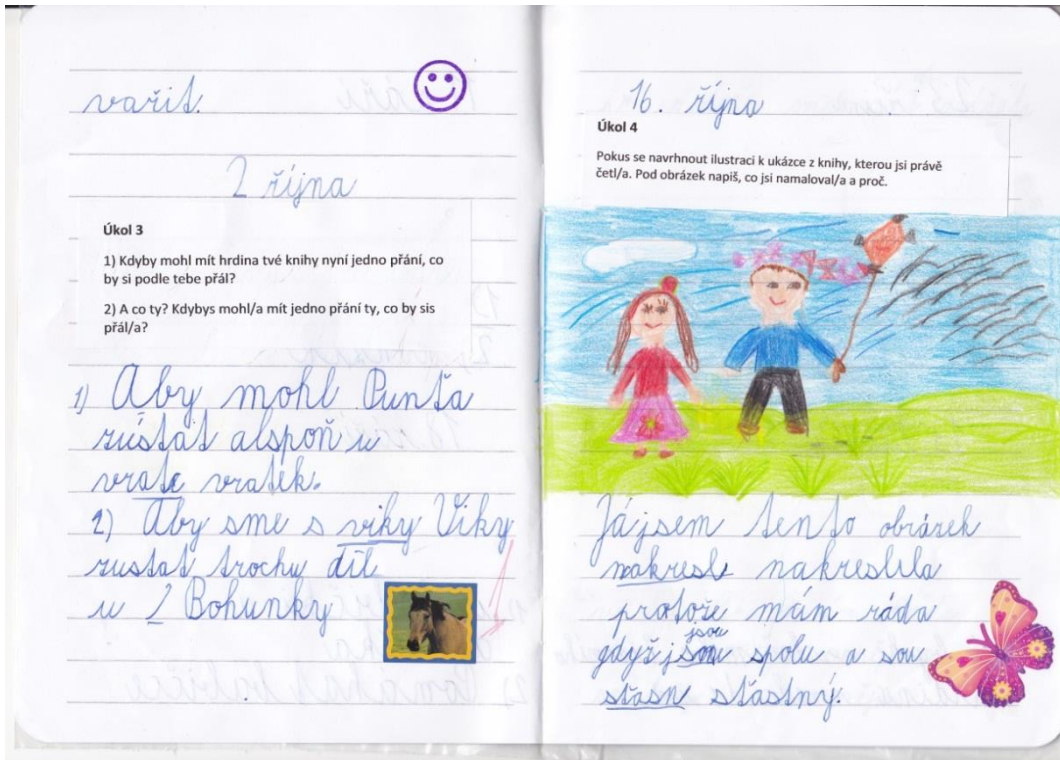 vařit.
2 října
Úkol 3
1) Kdyby mohl mít hrdina tvé knihy nyní jedno přání, co
by si podle tebe přál?
2) A co ty? Kdybys mohl/a mít jedno přání ty, co by sis
přál/a?
1) Aby mohl Punťa
zústat alspoň u
vrate vratek.
2) Aby sme s viky Viky
zustat trochu díl
u 2 Bohunky
16. října
Úkol 4
Pokus se navrhnout ilustraci k ukázce z knihy, kterou jsi právě
četl/a. Pod obrázek napiš, co jsi namaloval/a a proč.
Já jsem tento obrázek
nakresl nakreslila
protože mám ráda
jsou
gdyž jsou spolu a sou
sťasn sťastný.